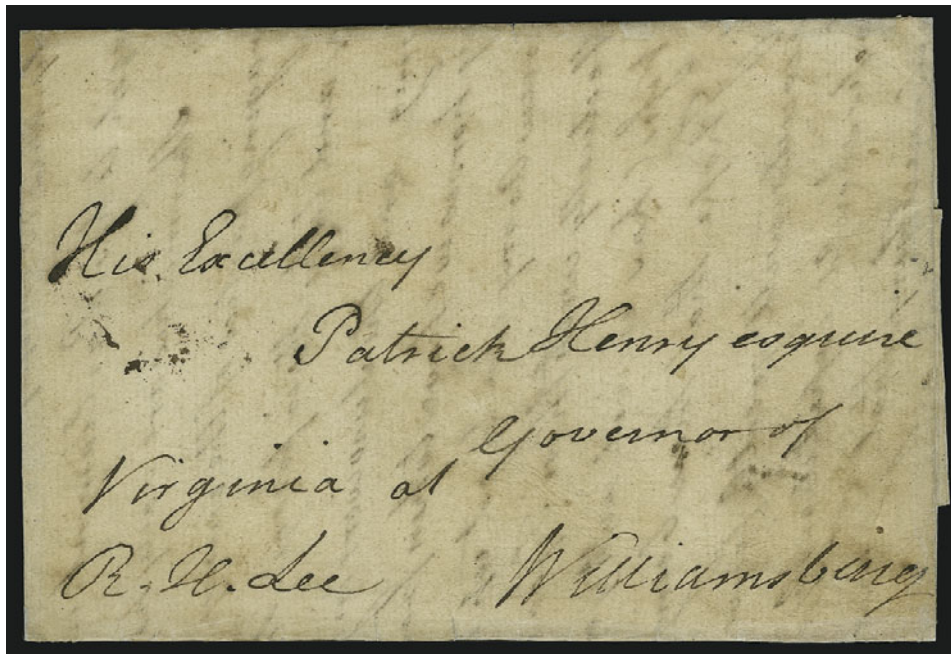 His Excellency
Patrick Henry esquire
Governor of
Virginia at
R. H. Lee Williamsburg